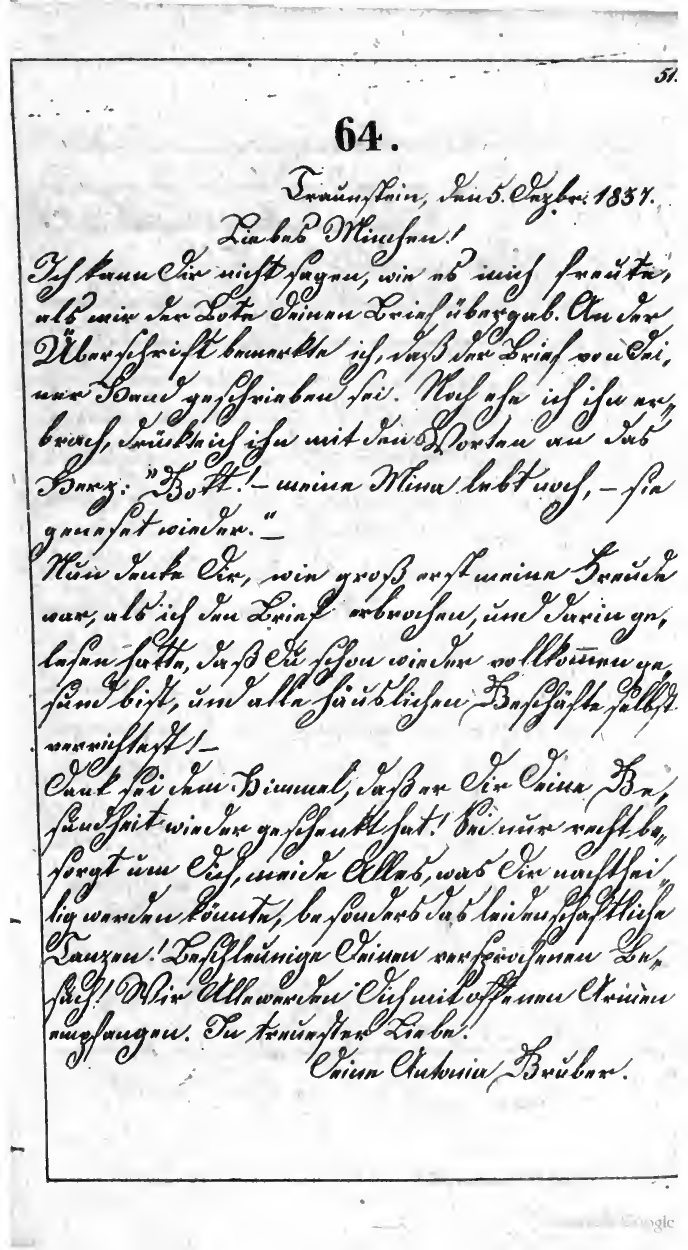 51.
64.
Traunstein, den 5. Dezbr. 1837.
Liebes Minchen!
Ich kann Dir nicht sagen, wie es mich freute,
als mir der Bote Deinen Brief übergab. An der
Überschrift bemerkte ich, daß der Brief von Dei„
ner Hand geschrieben sei. Noch ehe ich ihn er„
brach, drückte ich ihn mit den Worten an das
Herz: "Gott! – meine Mina lebt noch, – sie
geneset wieder." –
Nun denke Dir, wie groß erst meine Freude
war, als ich den Brief erbrochen, und darin ge„
lesen hatte, daß Du schon wieder vollkom̅en ge„
sund bist, und alle häuslichen Geschäfte selbst
verrichtest! –
Dank sei dem Himmel, daß er Dir Deine Ge„
sundheit wieder geschenkt hat! Sei nur recht be„
sorgt um Dich, meide Alles, was Dir nachthei„
lig werden könnte, besonders das leidenschaftliche
Tanzen! Beschleunige Deinen versprochenen Be„
such! Wir Alle werden Dich mit offenen Armen
empfangen. In treuester Liebe.
Deine Antonia Gruber.
Google